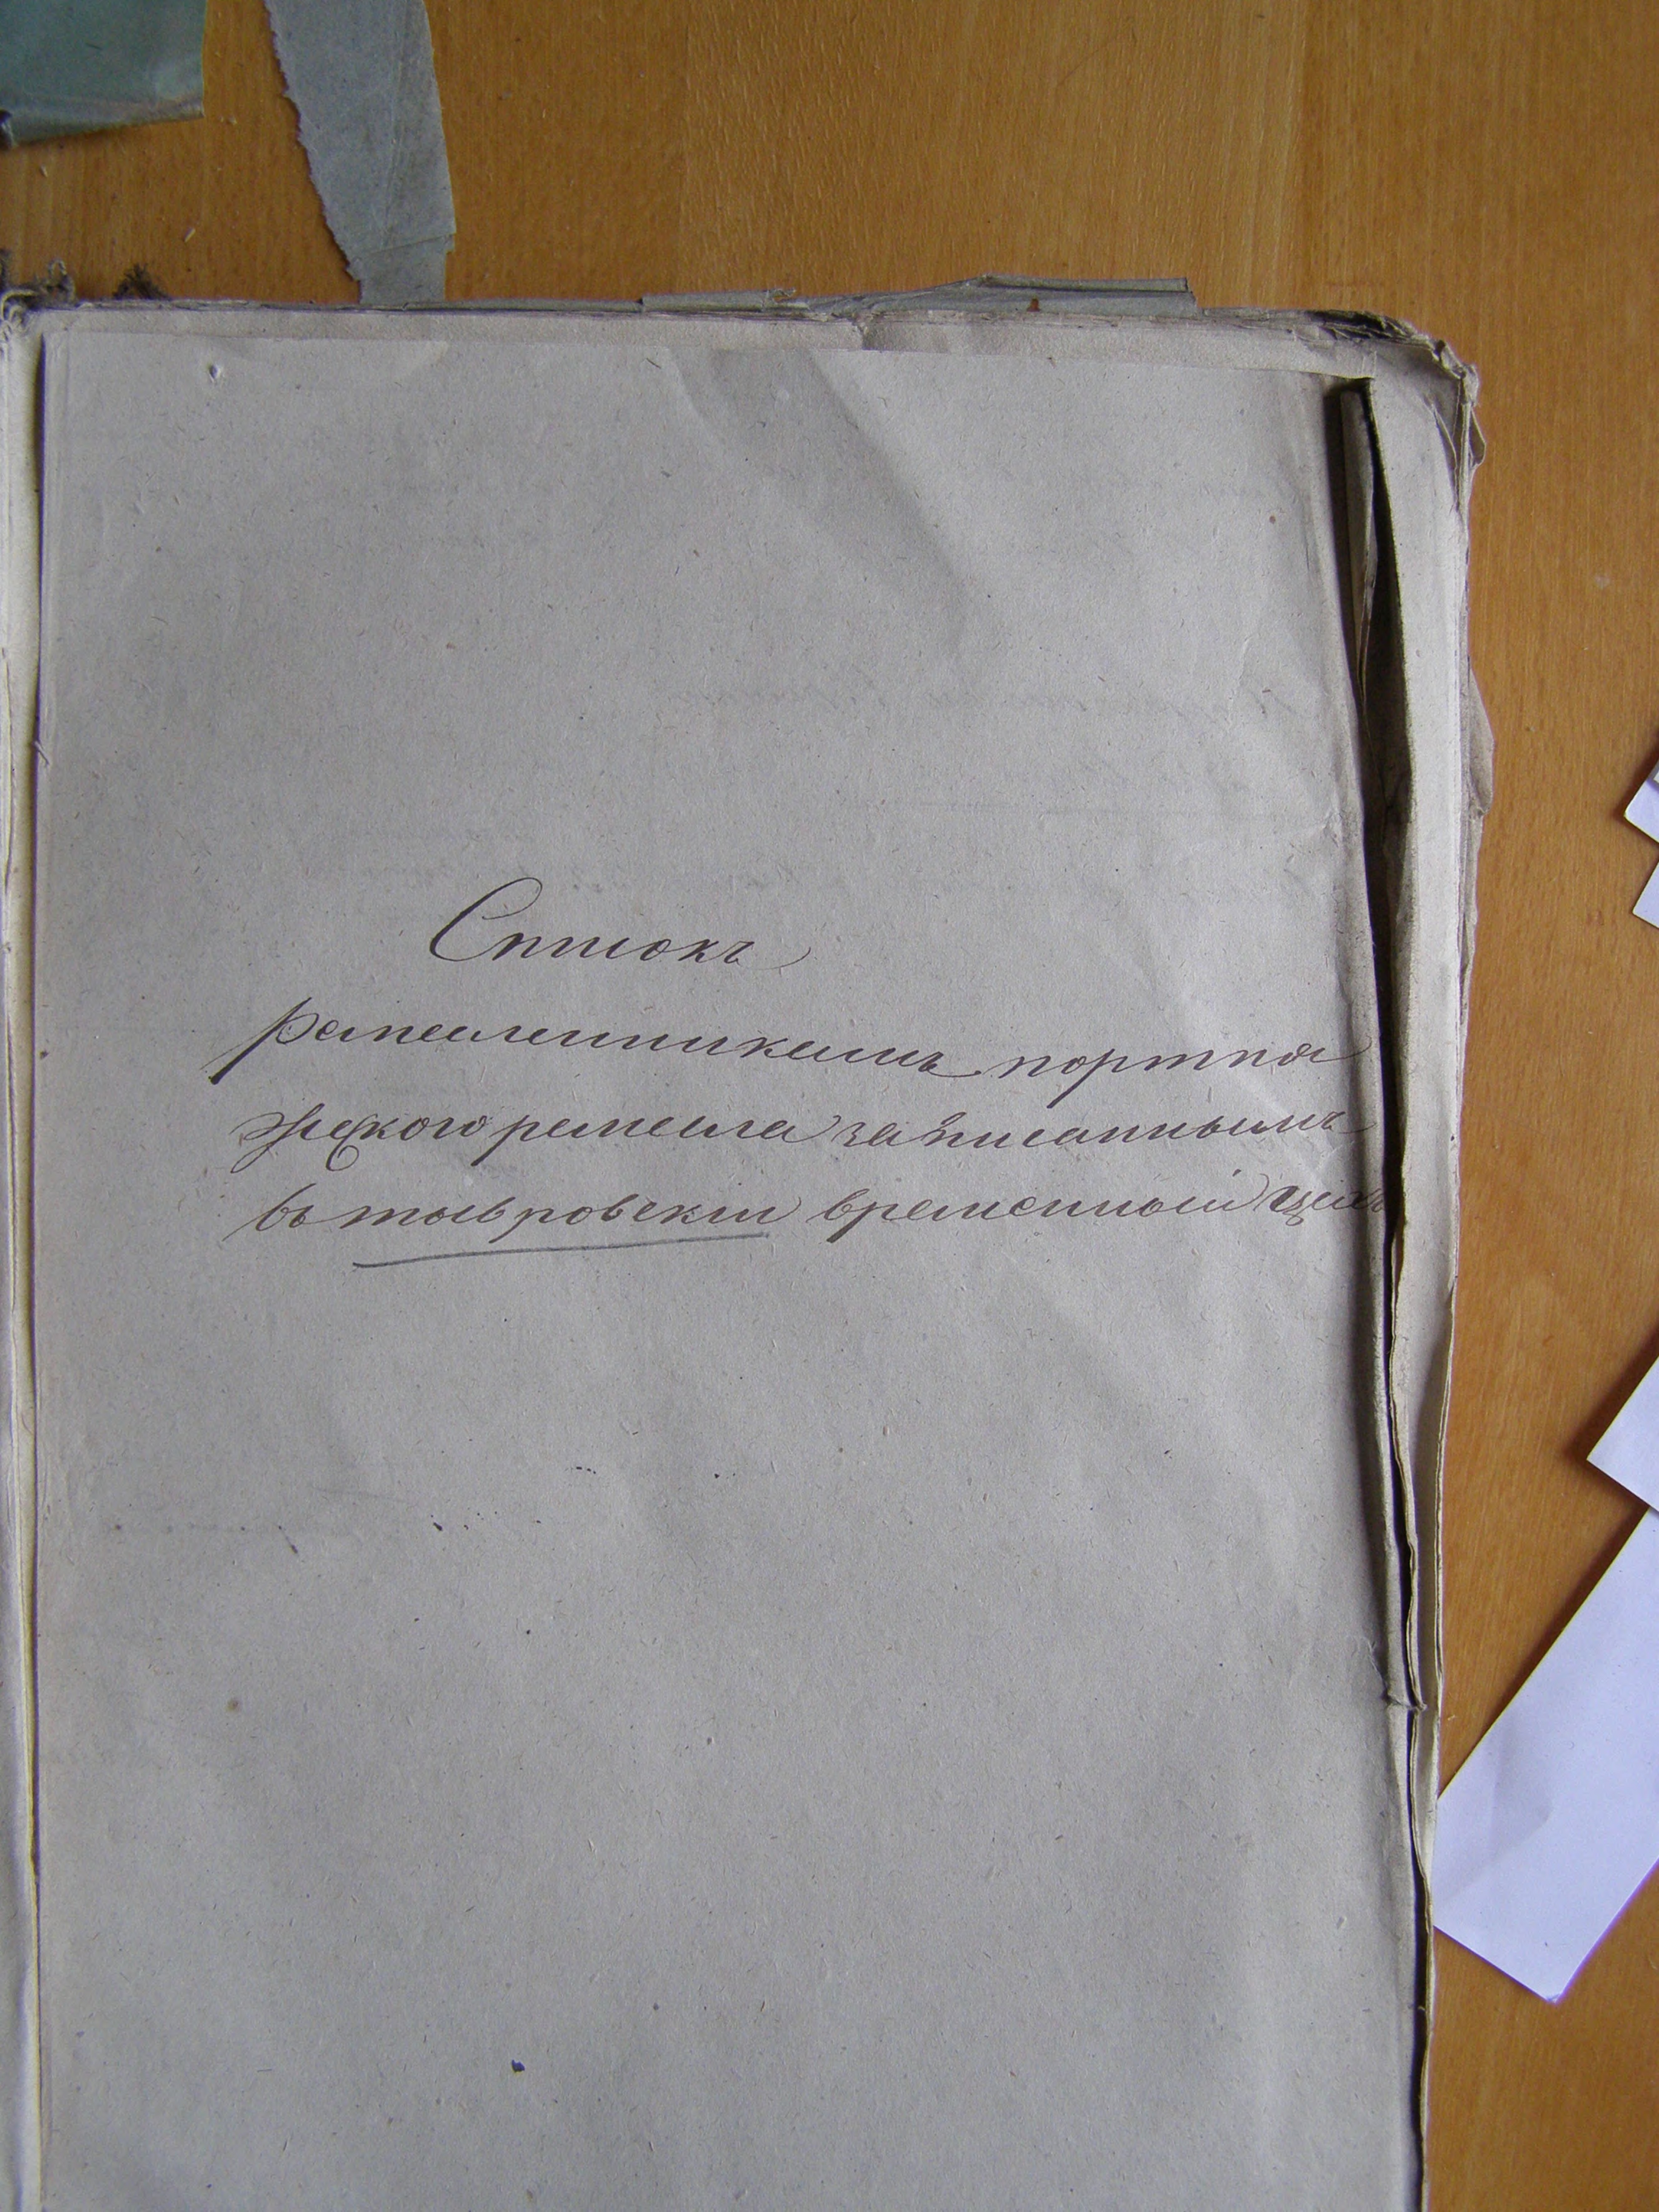 Списокъ
ремесленникамъ портня
жескаго ремесла записаннымъ
въ тывровскій временный цехъ